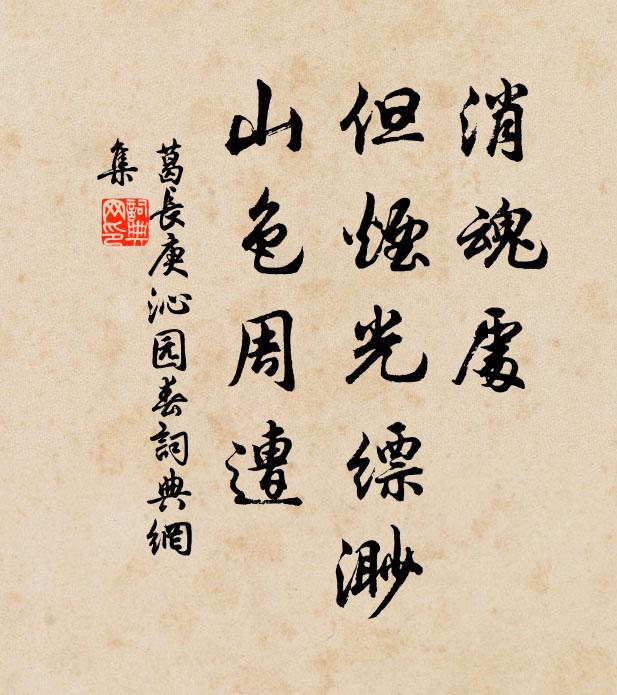 消魂處
但煙光缥渺
山色周遭
葛長庚沁园春詞典網
集
詞典網印